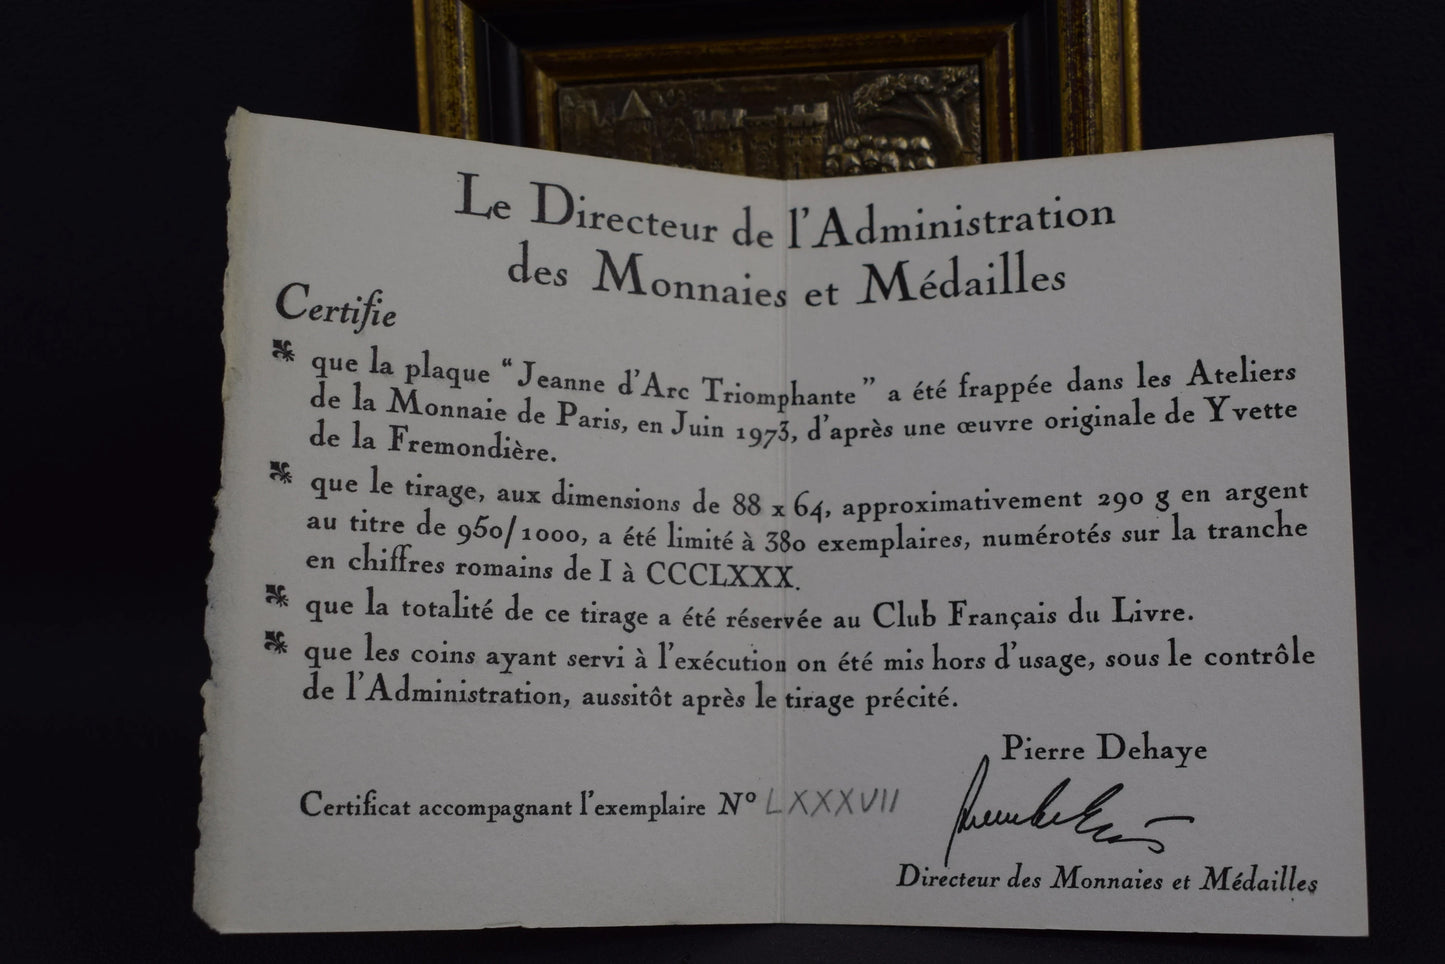 Le Directeur de l'Administration
des Monnaies et Médailles
Certifie
que la plaque “Jeanne d'Arc Triomphante” a été frappée dans les Ateliers
de la Monnaie de Paris, en Juin 1973, d'après une œuvre originale de Yvette
de la Fremondière.
que le tirage, aux dimensions de 88 x 64, approximativement 290 g en argent
au titre de 950/1000, a été limité à 380 exemplaires, numérotés sur la tranche
en chiffres romains de I à CCCLXXX.
que la totalité de ce tirage a été réservée au Club Français du Livre.
que les coins ayant servi à l'exécution on été mis hors d'usage, sous le contrôle
de l'Administration, aussitôt après le tirage précité.
Pierre Dehaye
Certificat accompagnant l'exemplaire Nº LXXXVII
Directeur des Monnaies et Médailles